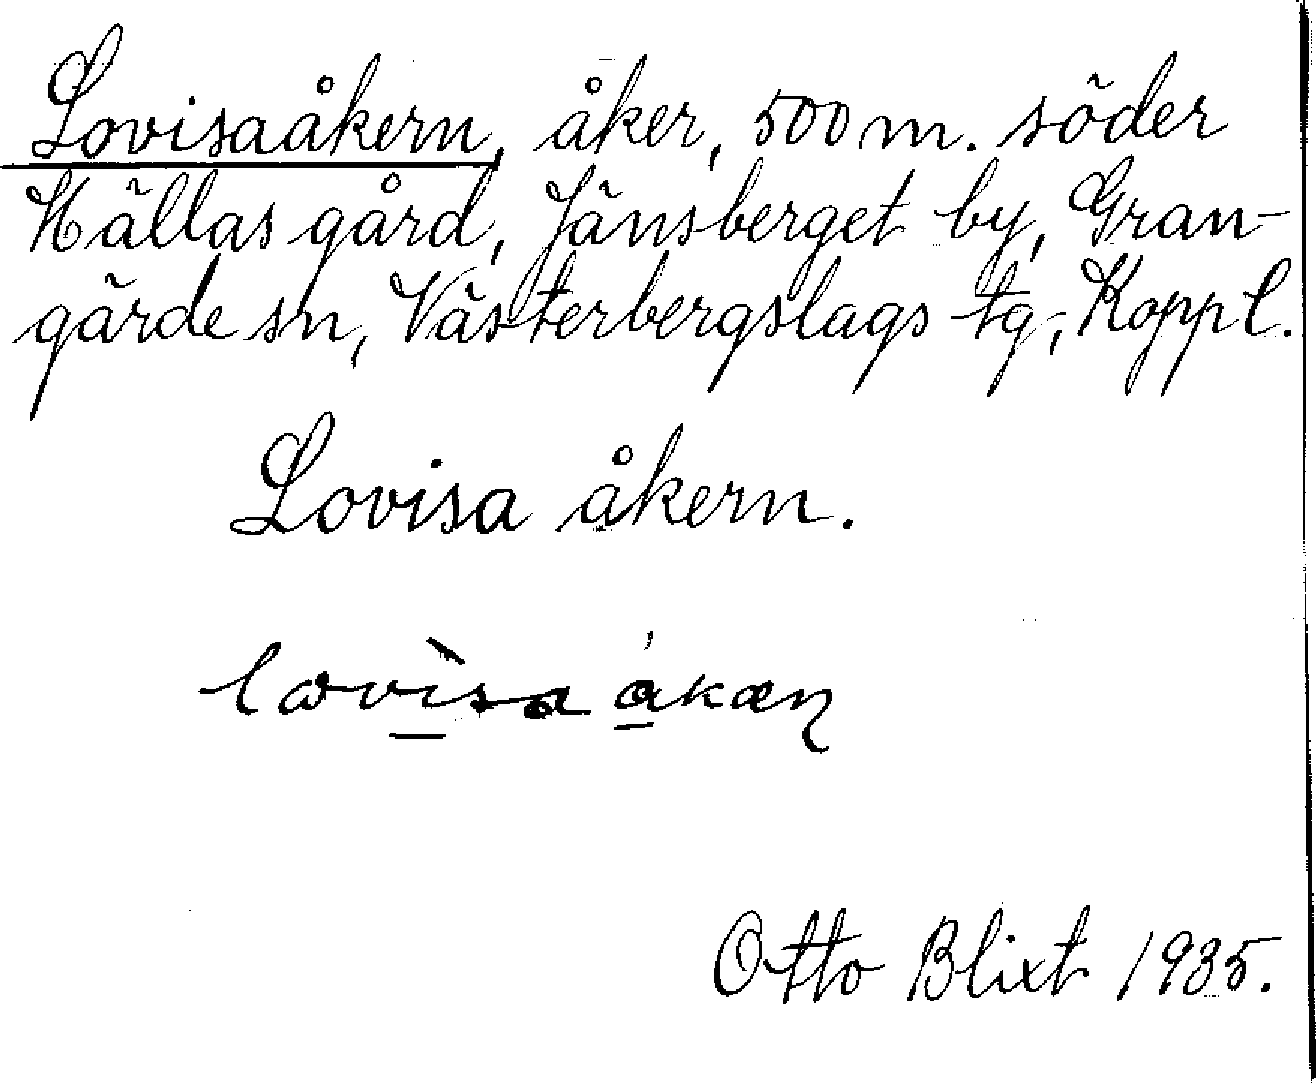 Lovisaåkern, åker, 500 m. söder
Hällas gård, Jänsberget by, Gran-
gärde sn, Västerbergslags tg, Koppl.
Lovisa åkern.
Otto Blixt 1935.